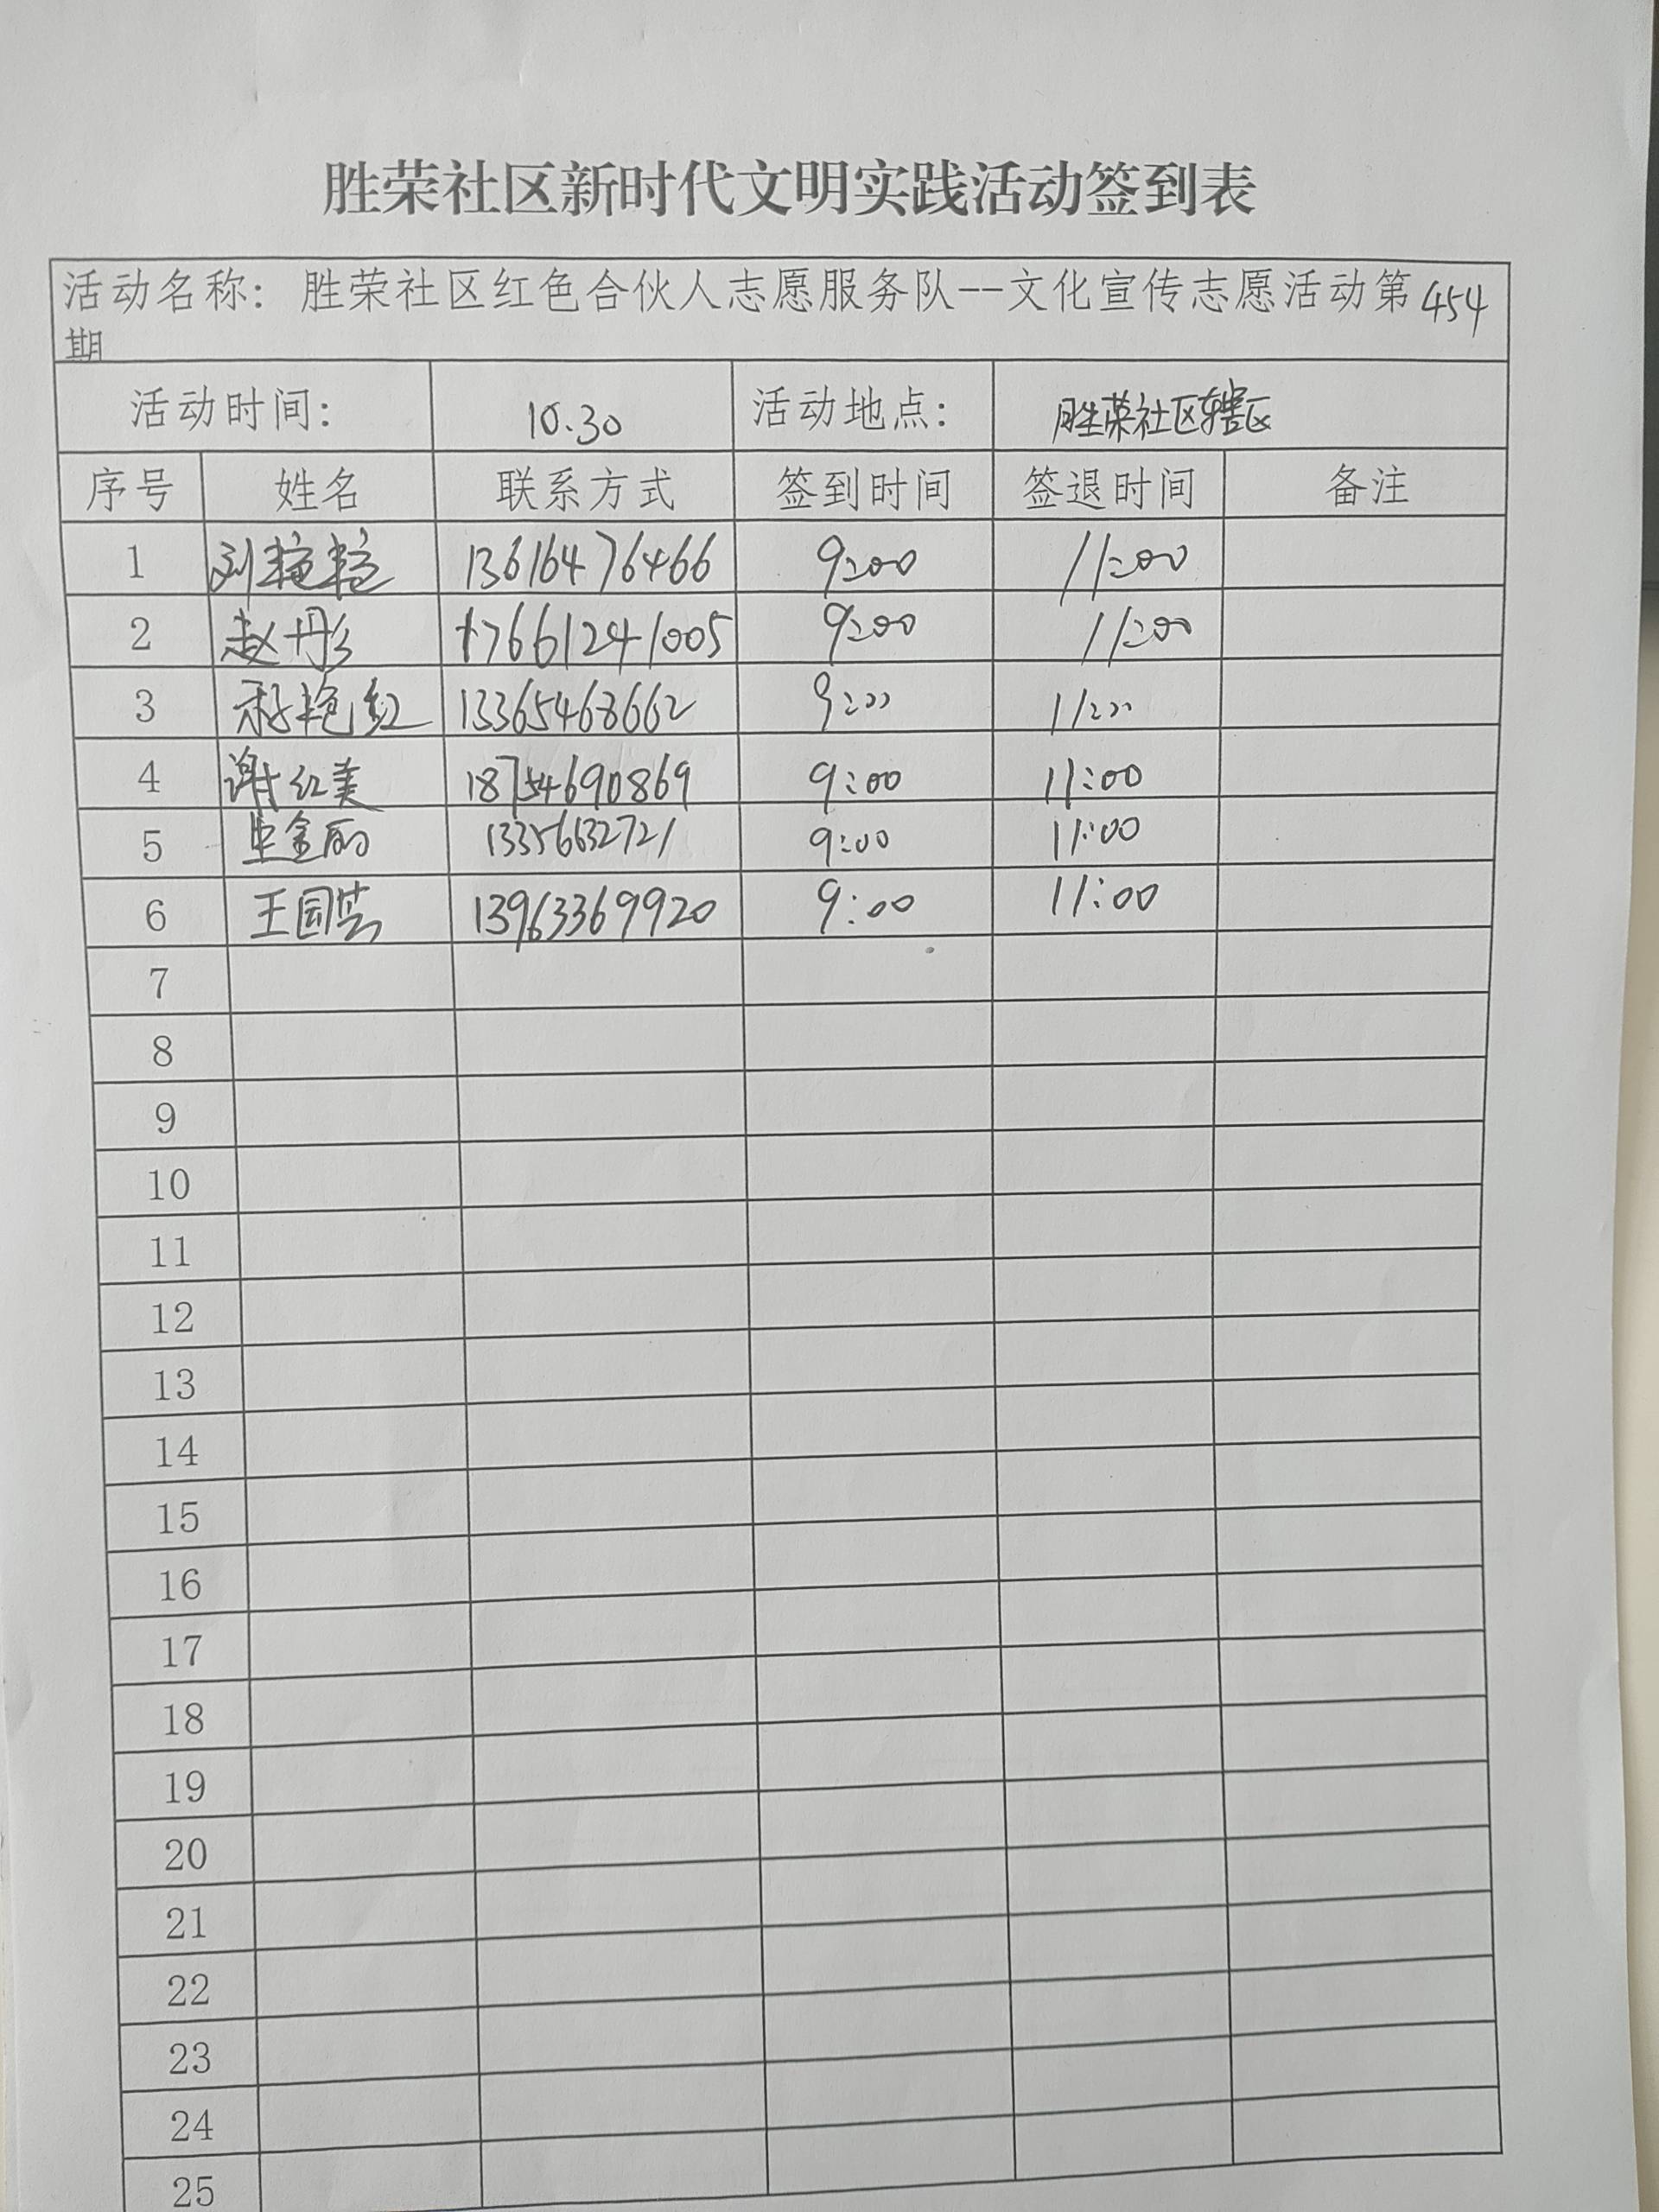 胜荣社区新时代文明实践活动签到表
活动名称：胜荣社区红色合伙人志愿服务队--文化宣传志愿活动第454
期
活动时间： 10.30 活动地点： 胜荣社区辖区
序号 姓名 联系方式 签到时间 签退时间 备注
1 13616476466 9:00 11:00
2 赵彤彡 17661241005 9:00 11:00
3 13365468662 9:00 11:00
4 谢红美 18754690869 9:00 11:00
5 13356632721 9:00 11:00
6 王国芸 13963369920 9:00 11:00
7
8
9
10
11
12
13
14
15
16
17
18
19
20
21
22
23
24
25